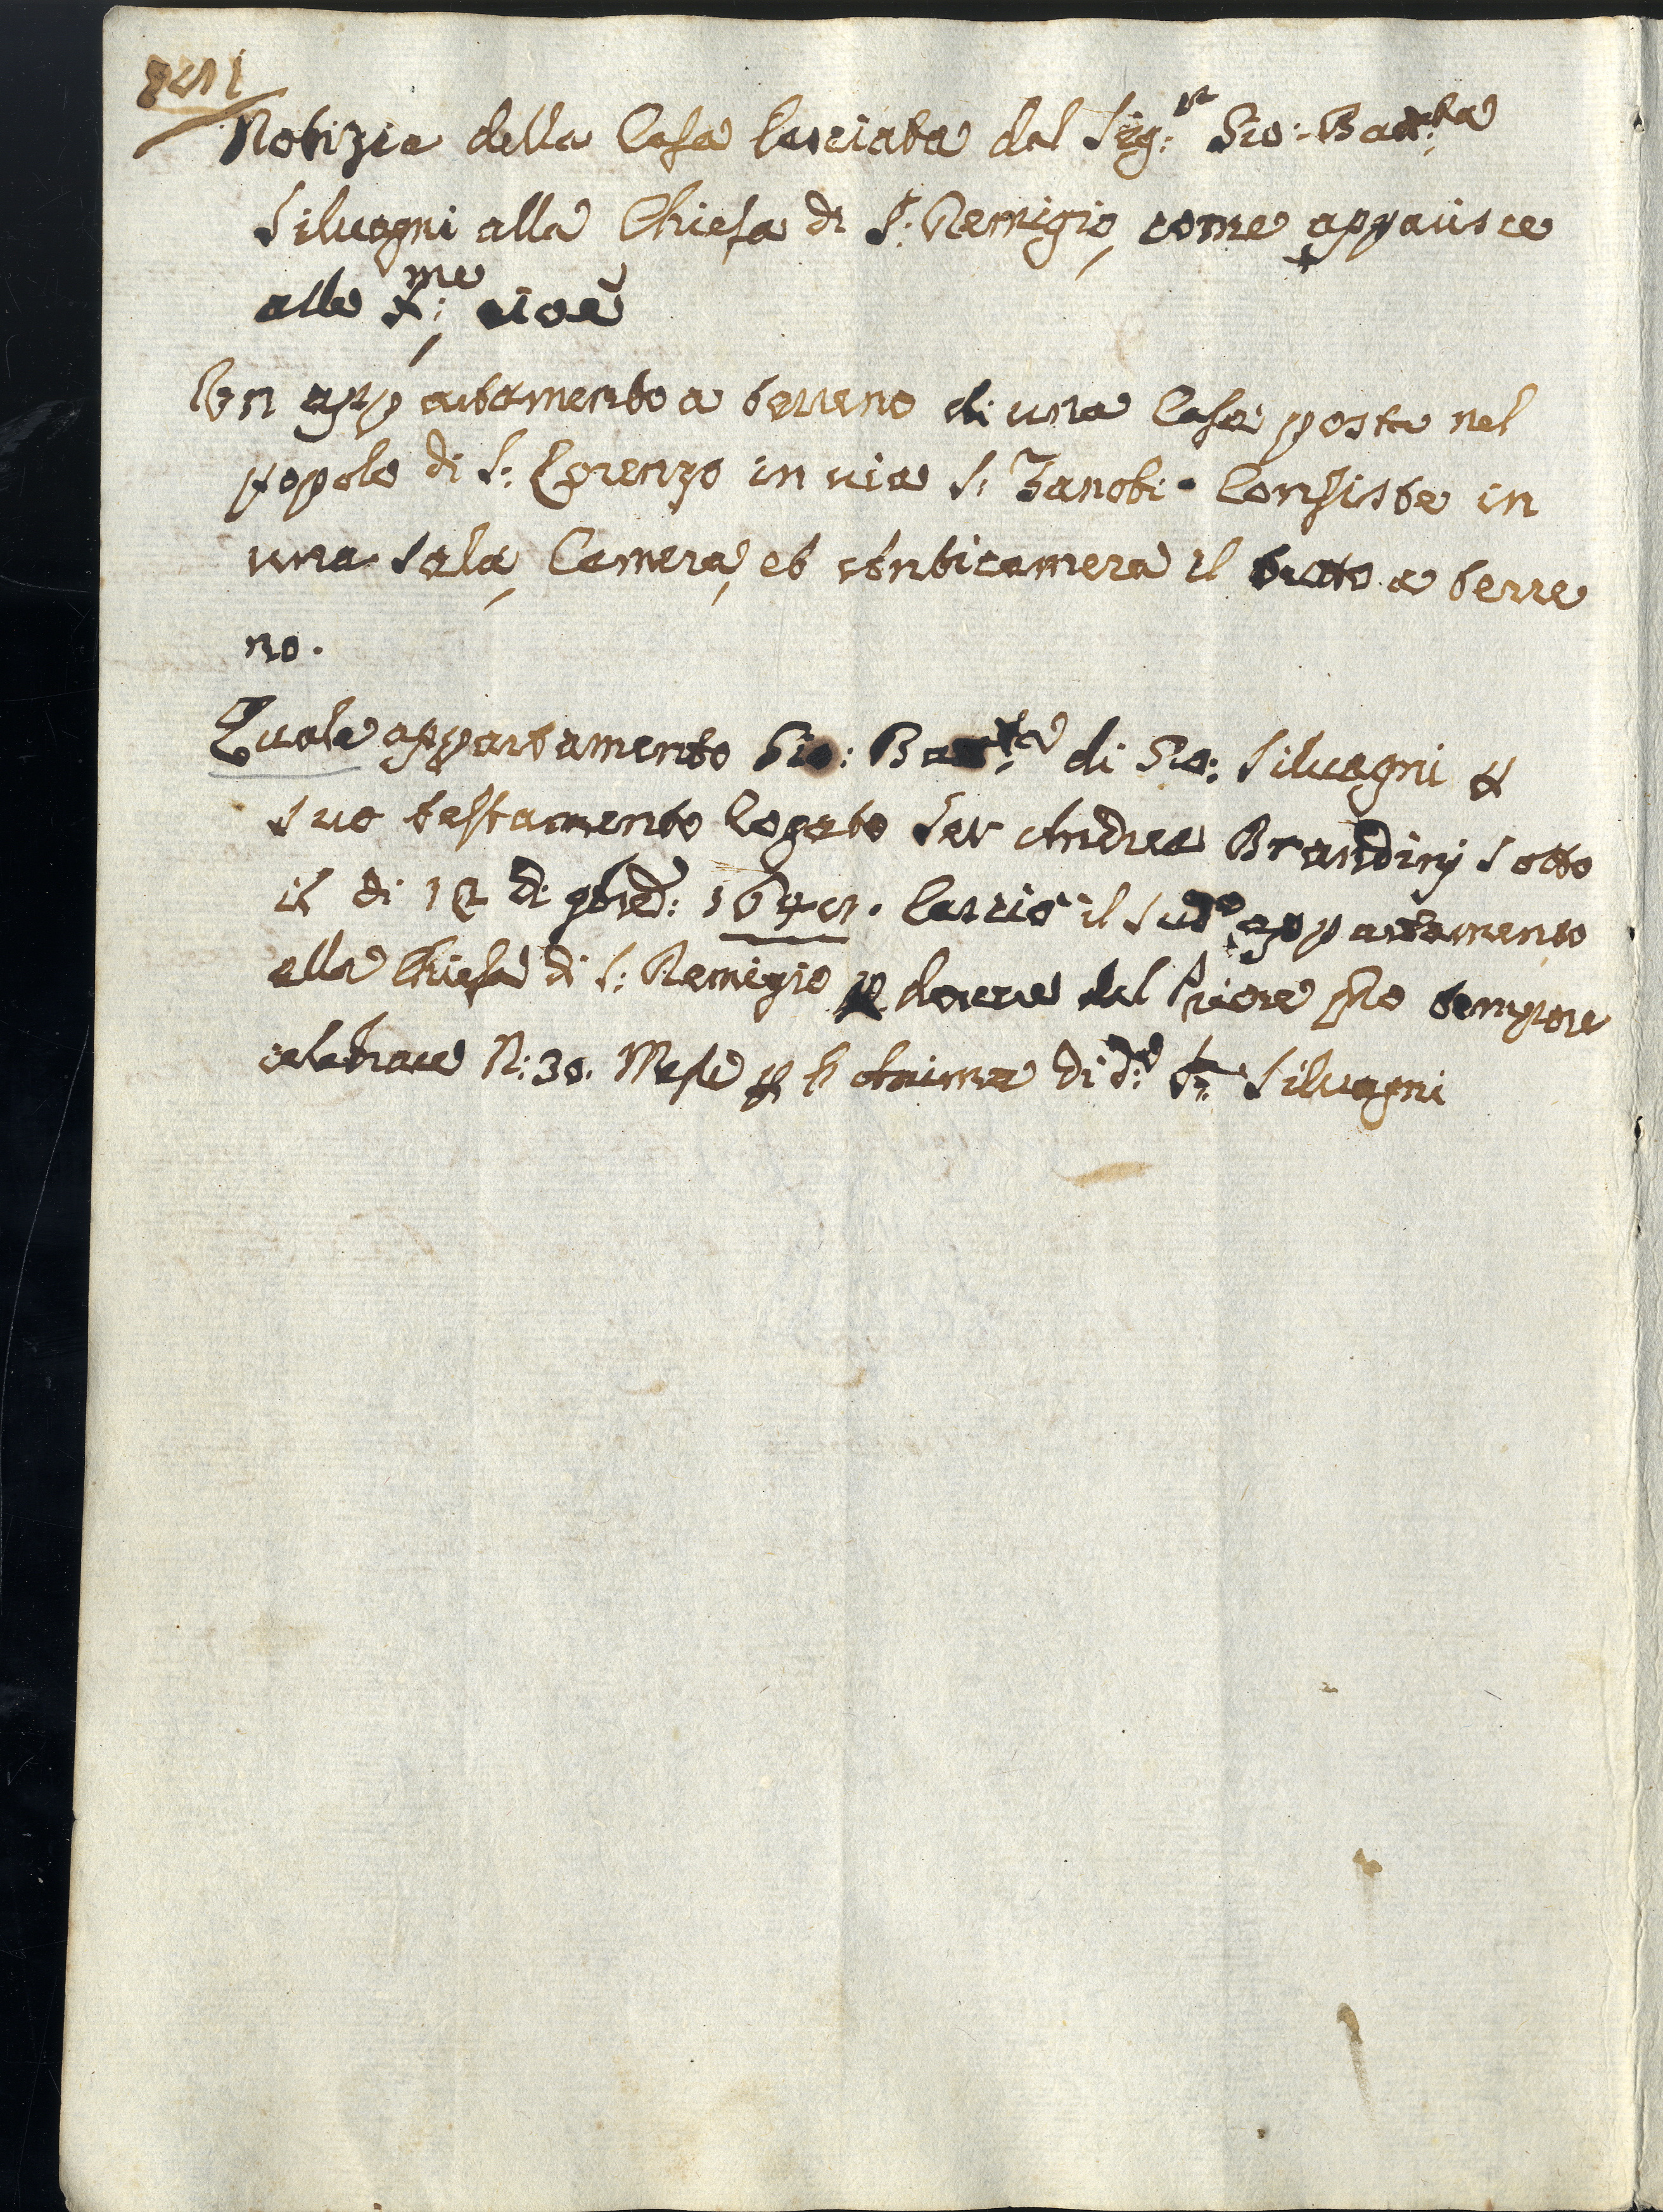 Notizia della Casa lasciata dal Sig:r Gio: Batt:ta
Siluagni alla Chiesa di S: Remigio, come apparisce
alle Xme: cioè
Un appartamento a terreno di una Casa posta nel
popolo di S: Lorenzo in uia S: Zanobi. Consiste in
una sala, Camera, et Anticamera il tutto a terre
no.
Quale appartamento Gio: Batt:ta di Gio: Siluagni p
suo testamento Rogato Ser Andrea Brandinj sotto
il di 12 di 9bre: lasciò il sud:o appartamento
alla Chiesa di S: Remigio p douere dal Priore pro tempore
celebrare N: 30. Messe p l'Anima di d:o Siluagni